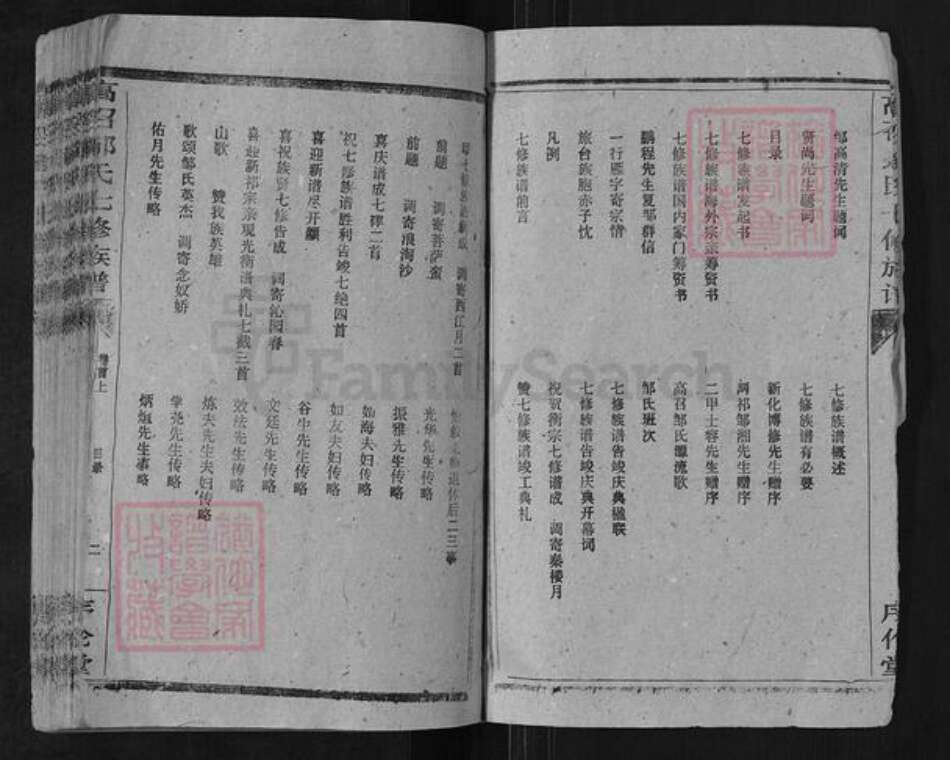 邹高清先生题词
贤尚先生题词
目录
七修族谱发起书
七修族谱海外宗亲筹资书
七修族谱国内家门筹资书
鹏程先生复邹群信
一行雁字寄宗情
旅台族胞赤子忱
凡例
七修族谱前言
七修族谱概述
七修族谱有必要
新化博修先生赠序
两祁邹湘先生赠序
二甲士容先生赠序
高召邹氏源流歌
邹氏班次
七修族谱告竣庆典楹联
七修族谱告竣庆典开幕词
祝贺衡宗七修谱成 调寄秦楼月
赞七修族谱竣工典礼
调寄西江月二首
前题 调寄菩萨蛮
前题 调寄浪淘沙
喜庆谱成七律二首
祝七修族谱胜利告竣七绝四首
喜迎新谱尽开颜
喜祝族贤七修告成 调寄沁园春
喜迎新祁宗亲观光衡谱典礼七截三首
山歌 赞我族英雄
歌颂邹氏英杰 调寄念奴娇
佑月先生传略
退休后二三事
光华先生传略
振雅先生传略
灿海夫妇传略
如友夫妇传略
谷中先生传略
文廷先生传略
效法先生传略
炼夫先生夫妇传略
学尧先生传略
炳烜先生事略
高召邹氏七修族谱
卷首上
目录
二
FamilySearch